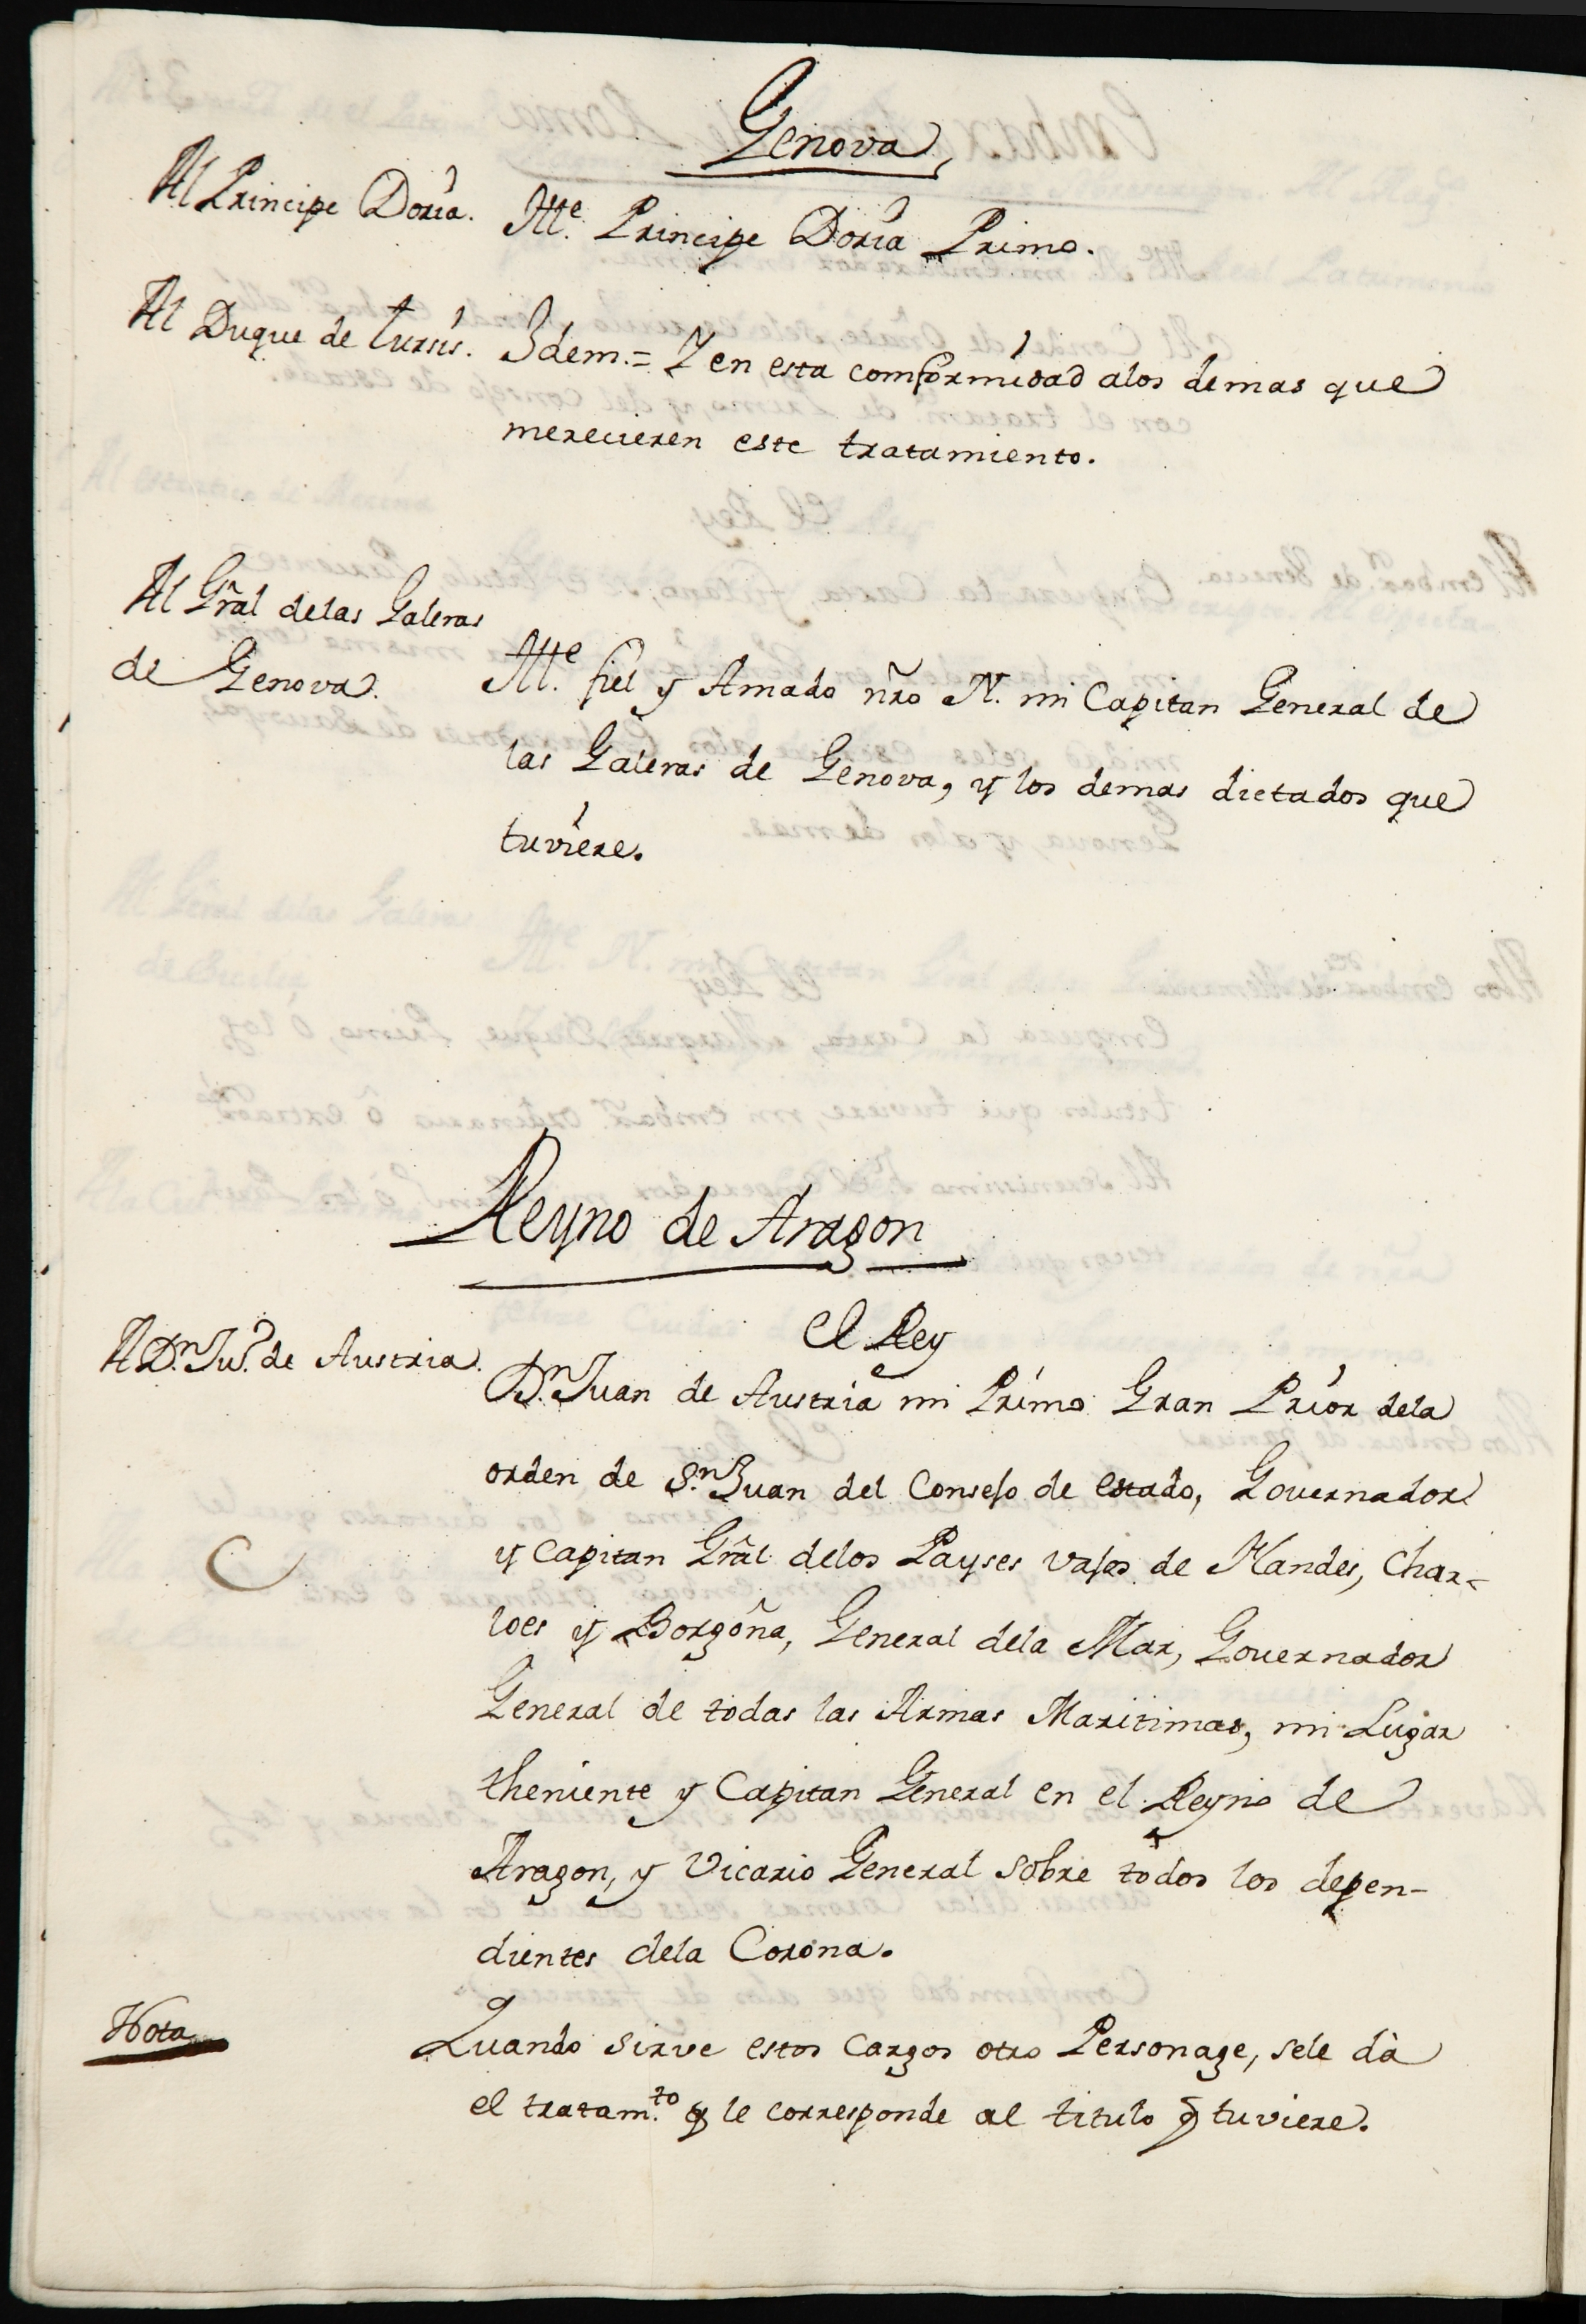 Genova
Al Principe Doria. Ille. Principe Doria Primo.
Al Duque de Tursis. Idem.= Y en esta comformidad alos demas que
merecieren este tratamiento.
Al Grãl delas Galeras
de Genova. Ille. fiel y Amado nr̃o N. mi Capitan General de
las Galeras de Genova, y los demas dictados que
tuviere.
Reyno de Aragon
El Rey
A Dn. Ju.º de Austria. Dn. Juan de Austria mi Primo Gran Prior dela
orden de Sn. Juan del Consejo de estado, Governador
y Capitan Grãl delos Payses vajos de Flandes, Char-
loes y Borgoña, General dela Mar, Governador
General de todas las Armas Maritimas, mi Lugar
theniente y Capitan General en el Reyno de
Aragon, y Vicario General sobre todos los depen-
dientes dela Corona.
Nota Quando sirve estos cargos otro Personage, sele dà
el tratam.to q̃ le corresponde al titulo q̃ tuviere.